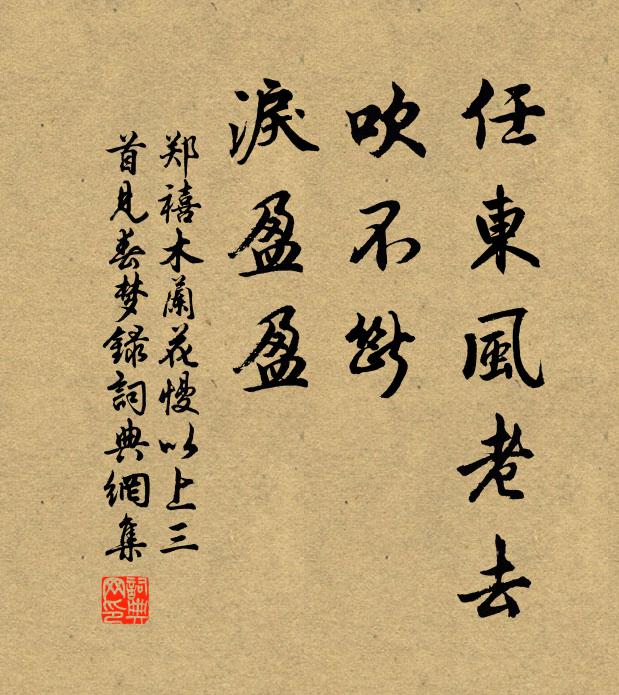 任東風老去
吹不斷
淚盈盈
郑禧木蘭花慢以上三
首見春梦録詞典網集
詞典网印